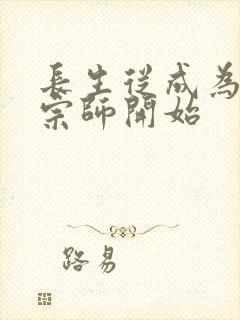 長生從成為
宗師開始
路易